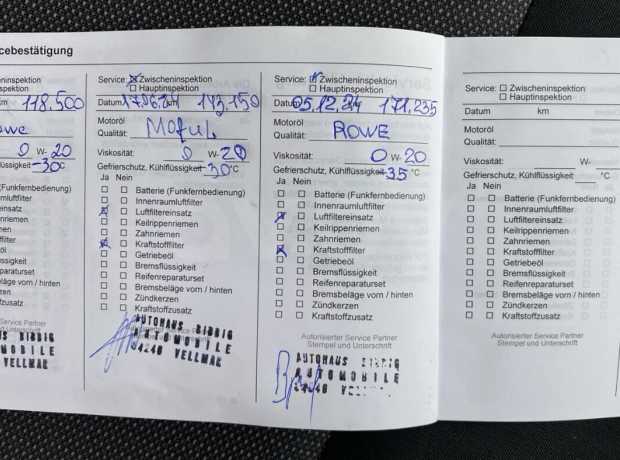 cebestätigung
cheninspektion
inspektion
m 118.500
owe
0 W- 20
lüssigkeit -30 °C
(Funkfernbedienung)
luftfilter
nsatz
riemen
n
ffilter
sigkeit
paraturset
läge vorn / hinten
n
zusatz
Service Partner
Unterschrift
MOBILE
VELLMAR
Service: ☒ Zwischeninspektion
☐ Hauptinspektion
Datum 17.06.24 143.150
Motoröl
Qualität: Motul
Viskosität: 0 W- 20
Gefrierschutz, Kühlflüssigkeit -30 °C
Ja Nein
Batterie (Funkfernbedienung)
Innenraumluftfilter
Luftfiltereinsatz
Keilrippenriemen
Zahnriemen
Kraftstofffilter
Getriebeöl
Bremsflüssigkeit
Reifenreparaturset
Bremsbeläge vorn / hinten
Zündkerzen
Kraftstoffzusatz
AUTOHAUS BIBRIG
AUTOMOBILE
34246 VELLMAR
Service: ☒ Zwischeninspektion
☐ Hauptinspektion
Datum 05.12.24 171.235
Motoröl
Qualität: ROWE
Viskosität: 0 W- 20
Gefrierschutz, Kühlflüssigkeit -35 °C
Ja Nein
Batterie (Funkfernbedienung)
Innenraumluftfilter
Luftfiltereinsatz
Keilrippenriemen
Zahnriemen
Kraftstofffilter
Getriebeöl
Bremsflüssigkeit
Reifenreparaturset
Bremsbeläge vorn / hinten
Zündkerzen
Kraftstoffzusatz
Autorisierter Service Partner
Stempel und Unterschrift
AUTOHAUS
AUTOMOBILE
34246
Service: ☐ Zwischeninspektion
☐ Hauptinspektion
Datum km
Motoröl
Qualität:
Viskosität: W-
Gefrierschutz, Kühlflüssigkeit °C
Ja Nein
Batterie (Funkfernbedienung)
Innenraumluftfilter
Luftfiltereinsatz
Keilrippenriemen
Zahnriemen
Kraftstofffilter
Getriebeöl
Bremsflüssigkeit
Reifenreparaturset
Bremsbeläge vorn / hinten
Zündkerzen
Kraftstoffzusatz
Autorisierter Service Partner
Stempel und Unterschrift